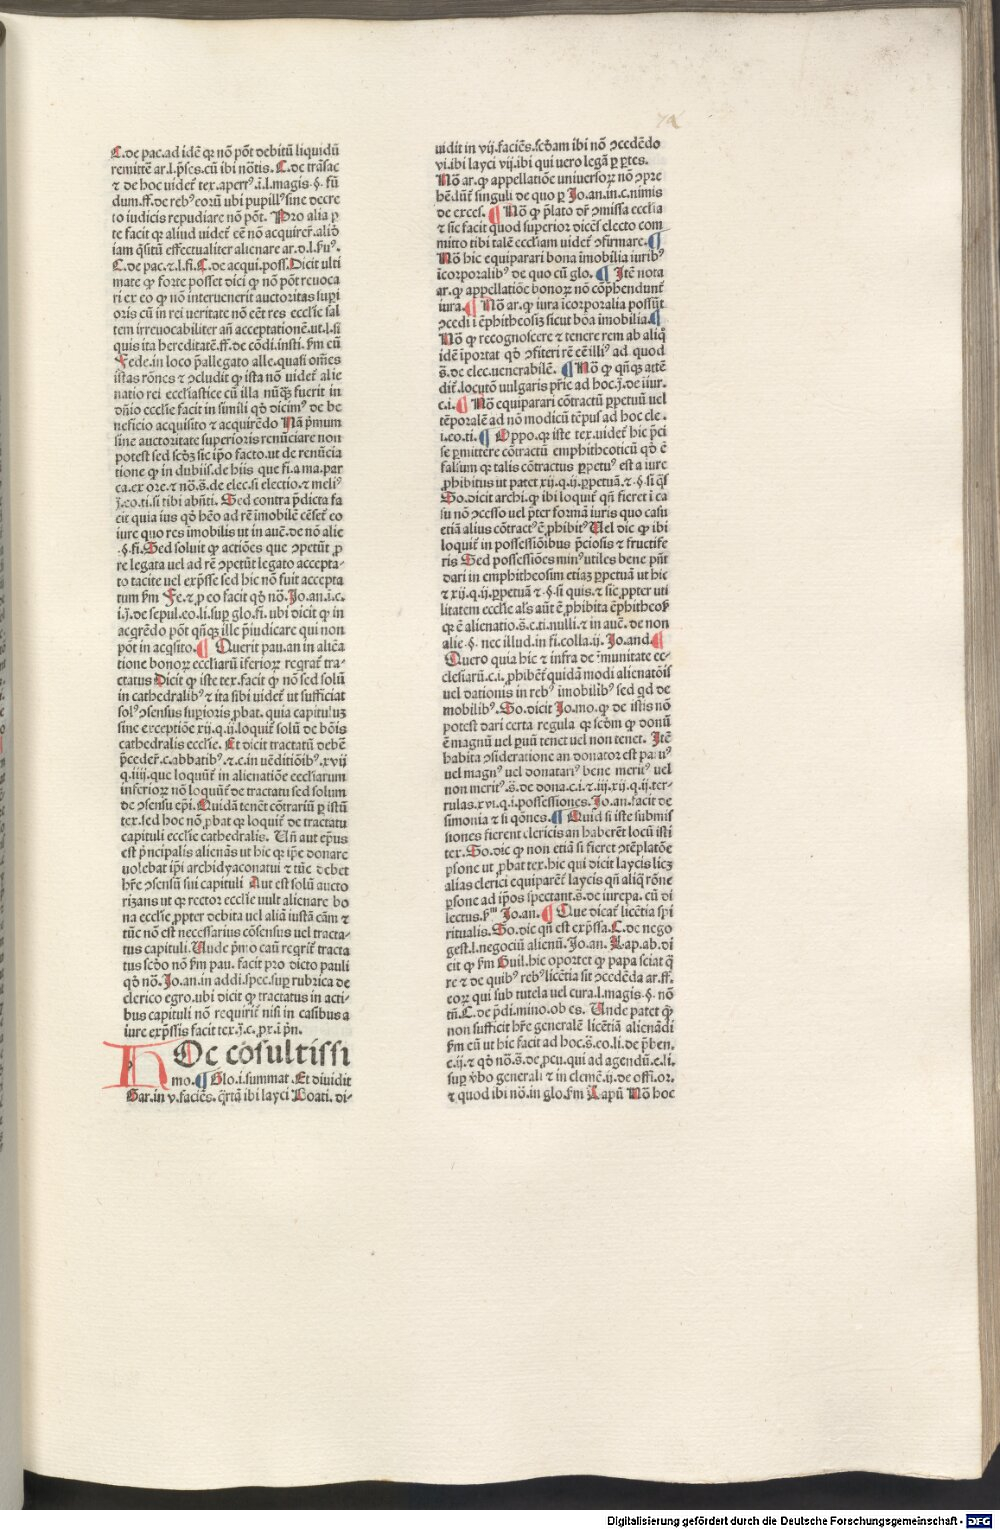 C.de pac.ad idē qꝛ nō pōt debitū liquidū
remittē ar.l.p̄ses.cū ibi nōtis.C.de trāsac
⁊ de hoc videt̄ tex.apertꝰ.ī.l.magis.§.fū
dum.ff.de rebꝰ eorū ubi pupillꝰ sine decre
to iudicis repudiare nō pōt. Pro alia ꝑ
te facit ꝙ aliud videt̄ cē nō acquirer̄.aliō
iam q̄sitū effectualiter alienare ar.d.l.fuꝰ.
C.de pac.⁊.l.fi.C.de acqui.poss.Dicit ulti
mate ꝙ forte posset dici ꝙ nō pōt revoca
ri ex eo ꝙ nō intervenerit auctoritas supi
oris cū in rei veritate nō eēt res ecclie sal
tem irrevocabiliter añ acceptationē.ut.l.si
quis ita hereditatē.ff.de cōdi.insti.fm eū
Fede.in loco p̄allegato alle.quasi om̄es
istas rōnes ⁊ ↄcludit ꝙ ista nō videt̄ alie
natio rei eccliastice cū illa nūꝗ̄ fuerit in
dñio ecclie facit in simili qd̄ dicimꝰ de be
neficio acquisito ⁊ acquirēdo Nā p̄mum
sine auctoritate superioris renūciare non
potest sed scd̄z sic ip̄o facto.ut de renūcia
tione ꝙ in dubiis.de hiis que fi.a ma.par
ca.ex ore.⁊ nō.s̄.de elec.si electio.⁊ meliꝰ
j̄.eo.ti.si tibi abn̄ti. Sed contra p̄dicta fa
cit quia ius qd̄ hēo ad rē īmobilē cēset̄ eo
iure quo res imobilis ut in auē.de nō alie
.§.fi.Sed soluit ꝙ actiōes que ↄpetūt ꝓ
re legata vel ad rē ↄpetūt legato accepta-
to tacite vel exp̄sse sed hic nō fuit accepta
tum fm Fe.⁊ ꝑ eo facit qd̄ nō.Jo.an.i.c.
i.j̄.de sepul.eo.li.suꝑ glo.fi.ubi dicit ꝙ in
acqrēdo pōt qn̄ꝗ ille p̄iudicare qui non
pōt in acqsito.¶ Querit pau.an in aliēa
tione bonoꝝ eccliarū īferioꝝ reqrat̄ tra-
ctatus Dicit ꝙ iste tex.facit ꝙ nō sed solū
in cathedralibꝰ ⁊ ita sibi videt̄ ut sufficiat
solꝰ ↄsensus supioris ꝓbat. quia capitulūz
sine exceptiōe xij.q.ij.loquit̄ solū de bōis
cathedralis ecclie. Et dicit tractatū debē
p̄ceder̄.c.abbatibꝰ.⁊.c.in vēditiōibꝰ.xvij
q.iiij.que loquūt̄ in alienatiōe eccliarum
inferioꝝ nō loquūt̄ de tractatu sed solum
de ↄsensu ep̄i.Quidā tenēt cōtrariū ꝑ istū
tex.sed hoc nō ꝓbat ꝙ loquit̄ de tractatu
capituli ecclie cathedralis. Uñ aut ep̄us
est p̄ncipalis alienās ut hic ꝙ ip̄e donare
volebat ip̄i archidyaconatui ⁊ tūc debet
hr̄e ↄsensū sui capituli Aut est solū aucto
rizans ut ꝙ rector ecclie vult alienare bo
na ecclie ꝓpter debita vel aliā iustā cām ⁊
tūc nō est necessarius cōsensus vel tracta-
tus capituli.Unde p̄mo caū reqrit̄ tracta
tus scd̄o nō fm pau. facit pro dicto pauli
qd̄ nō.Jo.an.in addi.spec.suꝑ rubrica de
clerico egro.ubi dicit ꝙ tractatus in acti-
bus capituli nō requirit̄ nisi in casibus a
iure exp̄ssis facit tex.j̄.c.ꝓx.i p̄n.
HOc cōsultissi
mo.¶ Glo.i.summat.Et dividit
Gar.in v.faciēs.q̄rtā ibi layci Boati.di-
vidit in vij.faciēs.scd̄am ibi nō ↄcedēdo
vi.ibi layci vij.ibi qui vero legā ꝑ ꝑtes.
Nō ar.ꝙ appellatiōe universoꝝ nō ↄpre
hē.dūt̄ singuli de quo ꝑ Jo.an.in.c.nimis
de exces.¶ Nō ꝙ p̄lato dr̄ ↄmissa ecclia
⁊ sic facit quod superior dicēs electo com
mitto tibi talē eccliam videt̄ ↄfirmare.¶
Nō hic equiparari bona imobilia iuribꝰ
īcorporalibꝰ de quo cū glo. ¶ Itē nota
ar.ꝙ appellatiōe bonoꝝ nō cōp̄hendunt̄
iura.¶ Nō ar.ꝙ iura īcorporalia possūt
ↄcedi ī ēphitheosīz sicut bōa imobilia.¶
Nō ꝙ recognoscere ⁊ tenere rem ab aliq̄
idē īportat qd̄ ↄfiteri rē eē illiꝰ ad quod
s̄.de elec.venerabilē. ¶ Nō ꝙ qn̄ꝗ attē
dit̄.locutō vulgaris p̄rie ad hoc.j̄.de iiur.
c.i.¶ Nō equiparari cōtractū ꝑpetuū vel
tēporalē ad nō modicū tēpus ad hoc cle.
i.eo.ti.¶ Oppo.qꝛ iste tex.videt̄ hic p̄ci
se ꝑmittere cōtractū emphitheoticū qd̄ ē
falsum qꝛ talis cōtractus ꝑpetuꝰ est a iure
ꝓhibitus ut patet xij.q.ij.ꝑpetuā.⁊.§.si q̄s
So.dicit archi.ꝙ ibi loquit̄ qn̄ fieret i ca
su nō ↄcesso vel p̄ter formā iuris quo casu
etiā alius cōtractꝰ ē ꝓhibitꝰ Vel dic ꝙ ibi
loquit̄ in possessiōibus p̄ciosis ⁊ fructife
ris Sed possessiōes minꝰ utiles bene pn̄t
dari in emphitheosim etiaz ꝑpetuā ut hic
⁊ xij.q.ij.ꝑpetuā ⁊.§.si quis.⁊ sic ꝓpter uti
litatem ecclie als aūt ē ꝓhibita ēphitheoꝭ
qꝛ ē alienatio.s̄.c.ti.nulli.⁊ in auē.de non
alie.§. nec illud.in fi.colla.ij. Jo.and.¶
Quero quia hic ⁊ infra de īmunitate ec-
clesiarū.c.i.ꝓhibēt̄ quidā modi alienatōis
vel dationis in rebꝰ imobilibꝰ sed qd de
mobilibꝰ.So.dicit Jo.mo.ꝙ de istis nō
potest dari certa regula qꝛ scd̄m ꝙ donū
ē magnū vel ꝑvū tenet vel non tenet. Itē
habita ↄsideratione an donator est paruꝰ
vel magnꝰ vel donatarꝰ bene meritꝰ vel
non meritꝰ.s̄.de dona.c.i.⁊.iij.xij.q.ij.ter-
rulas.xvi.q.i.possessiones.Jo.an.facit de
simonia ⁊ si qōnes.¶ Quid si iste submis
siones fierent clericis an haberēt locū isti
tex.So.dic ꝙ non etiā si fieret ↄtēplatōe
ꝑsone ut ꝓbat tex.hic qui dicit laycis licz
alias clerici equiparēt̄ laycis qn̄ aliq̄ rōne
ꝑsone ad ip̄os spectant.s̄.de iurepa. cū di
lectus.fm Jo.an.¶ Que dicat̄ licētia spi
ritualis.So.dic qn̄ est exp̄ssa.C.de nego
gest.l.negociū alienū.Jo.an. Lap.ab.di
cit ꝙ fm Guil.hic oportet ꝙ papa sciat q̄
re ⁊ de quibꝰ rebꝰ licētia sit ↄcedēda ar.ff.
eoꝝ qui sub tutela vel cura.l.magis.§. nō
tn̄.C.de p̄di.mino.ob es. Unde patet ꝙ
non sufficit hr̄e generalē licētiā alienādi
fm eū ut hic facit ad hoc.s̄.eo.li.de p̄ben.
c.ij.⁊ qd̄ nō.s̄.de ꝓcu.qui ad agendū.e.li.
suꝑ v̄bo generali ⁊ in clemē.ij.de offi.or.
⁊ quod ibi nō.in glo.fm Lapū Nō hoc
Digitalisierung gefördert durch die Deutsche Forschungsgemeinschaft - DFG